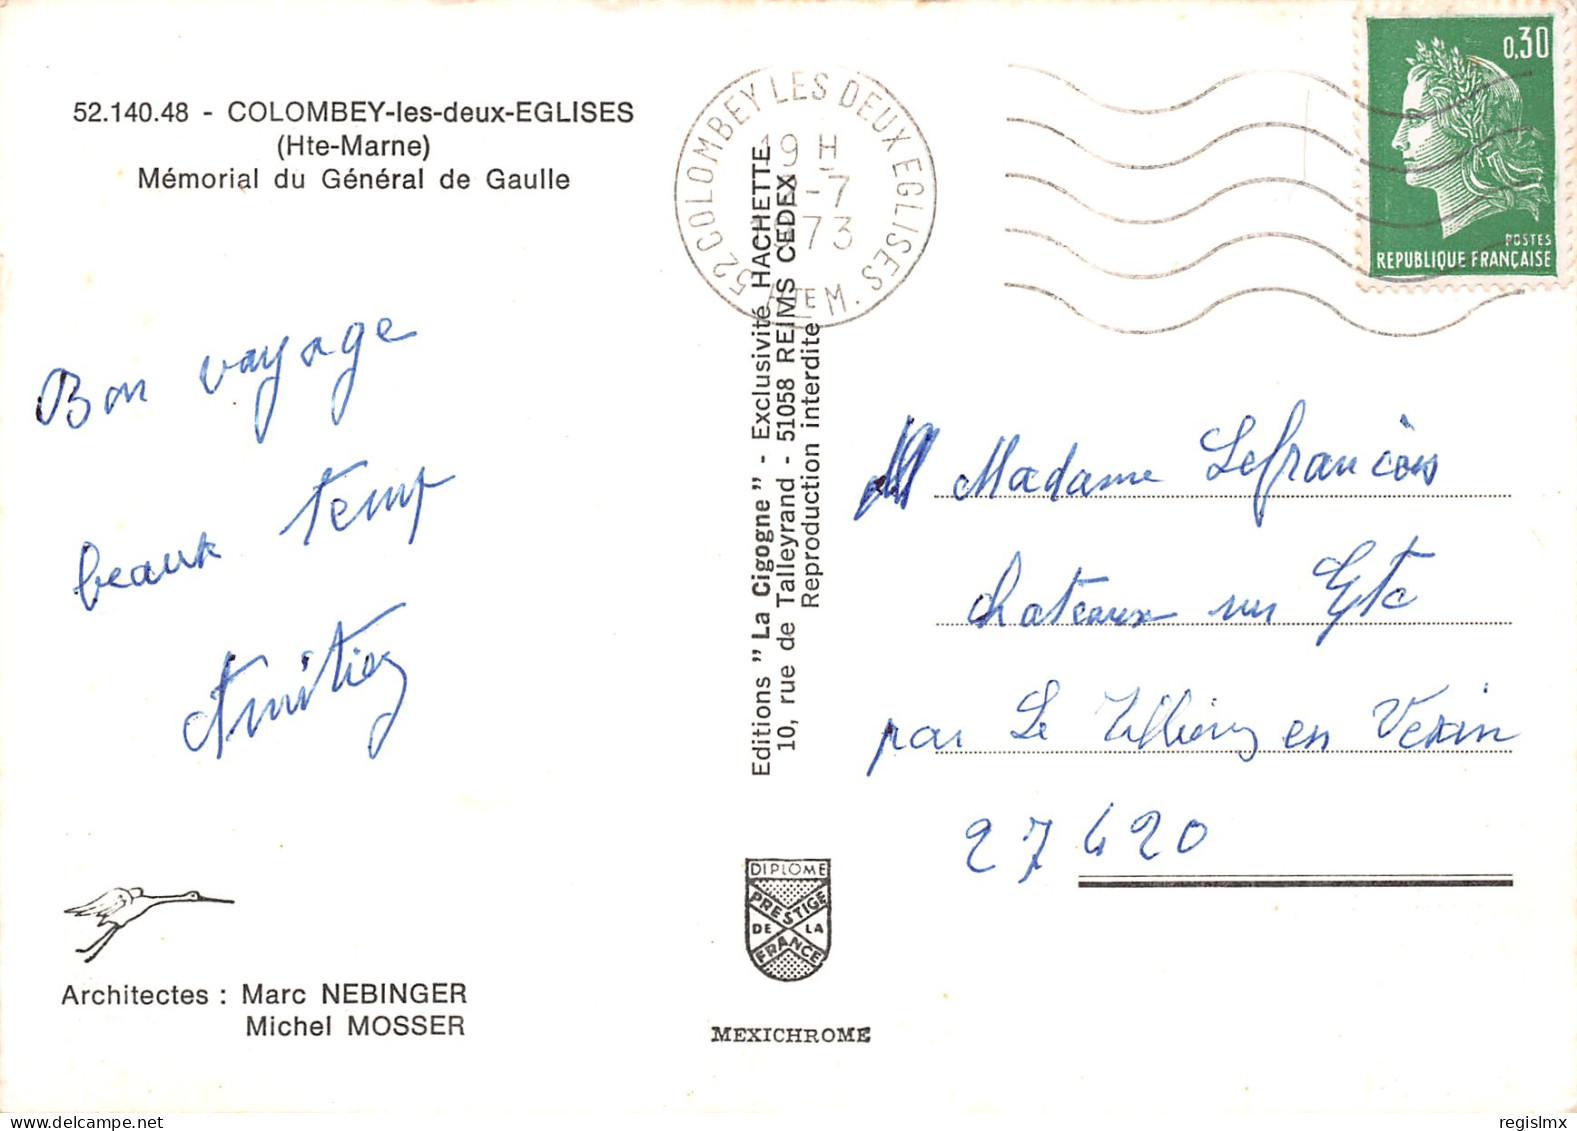 52.140.48 - COLOMBEY-les-deux-EGLISES
(Hte-Marne)
Mémorial du Général de Gaulle
52 COLOMBEY LES DEUX EGLISES
HTE M.
19 H
-7
1973
0,30
POSTES
REPUBLIQUE FRANÇAISE
Bon voyage
beaux temps
Amitiez
Editions " La Cigogne " - Exclusivité HACHETTE
10, rue de Talleyrand - 51058 REIMS CEDEX
Reproduction interdite
Madame Lefrancois
chateaux sur Epte
par Le Tilliers en Vexin
27420
DIPLOME
PRESTIGE
DE LA
FRANCE
MEXICHROME
Architectes : Marc NEBINGER
Michel MOSSER
regislmx